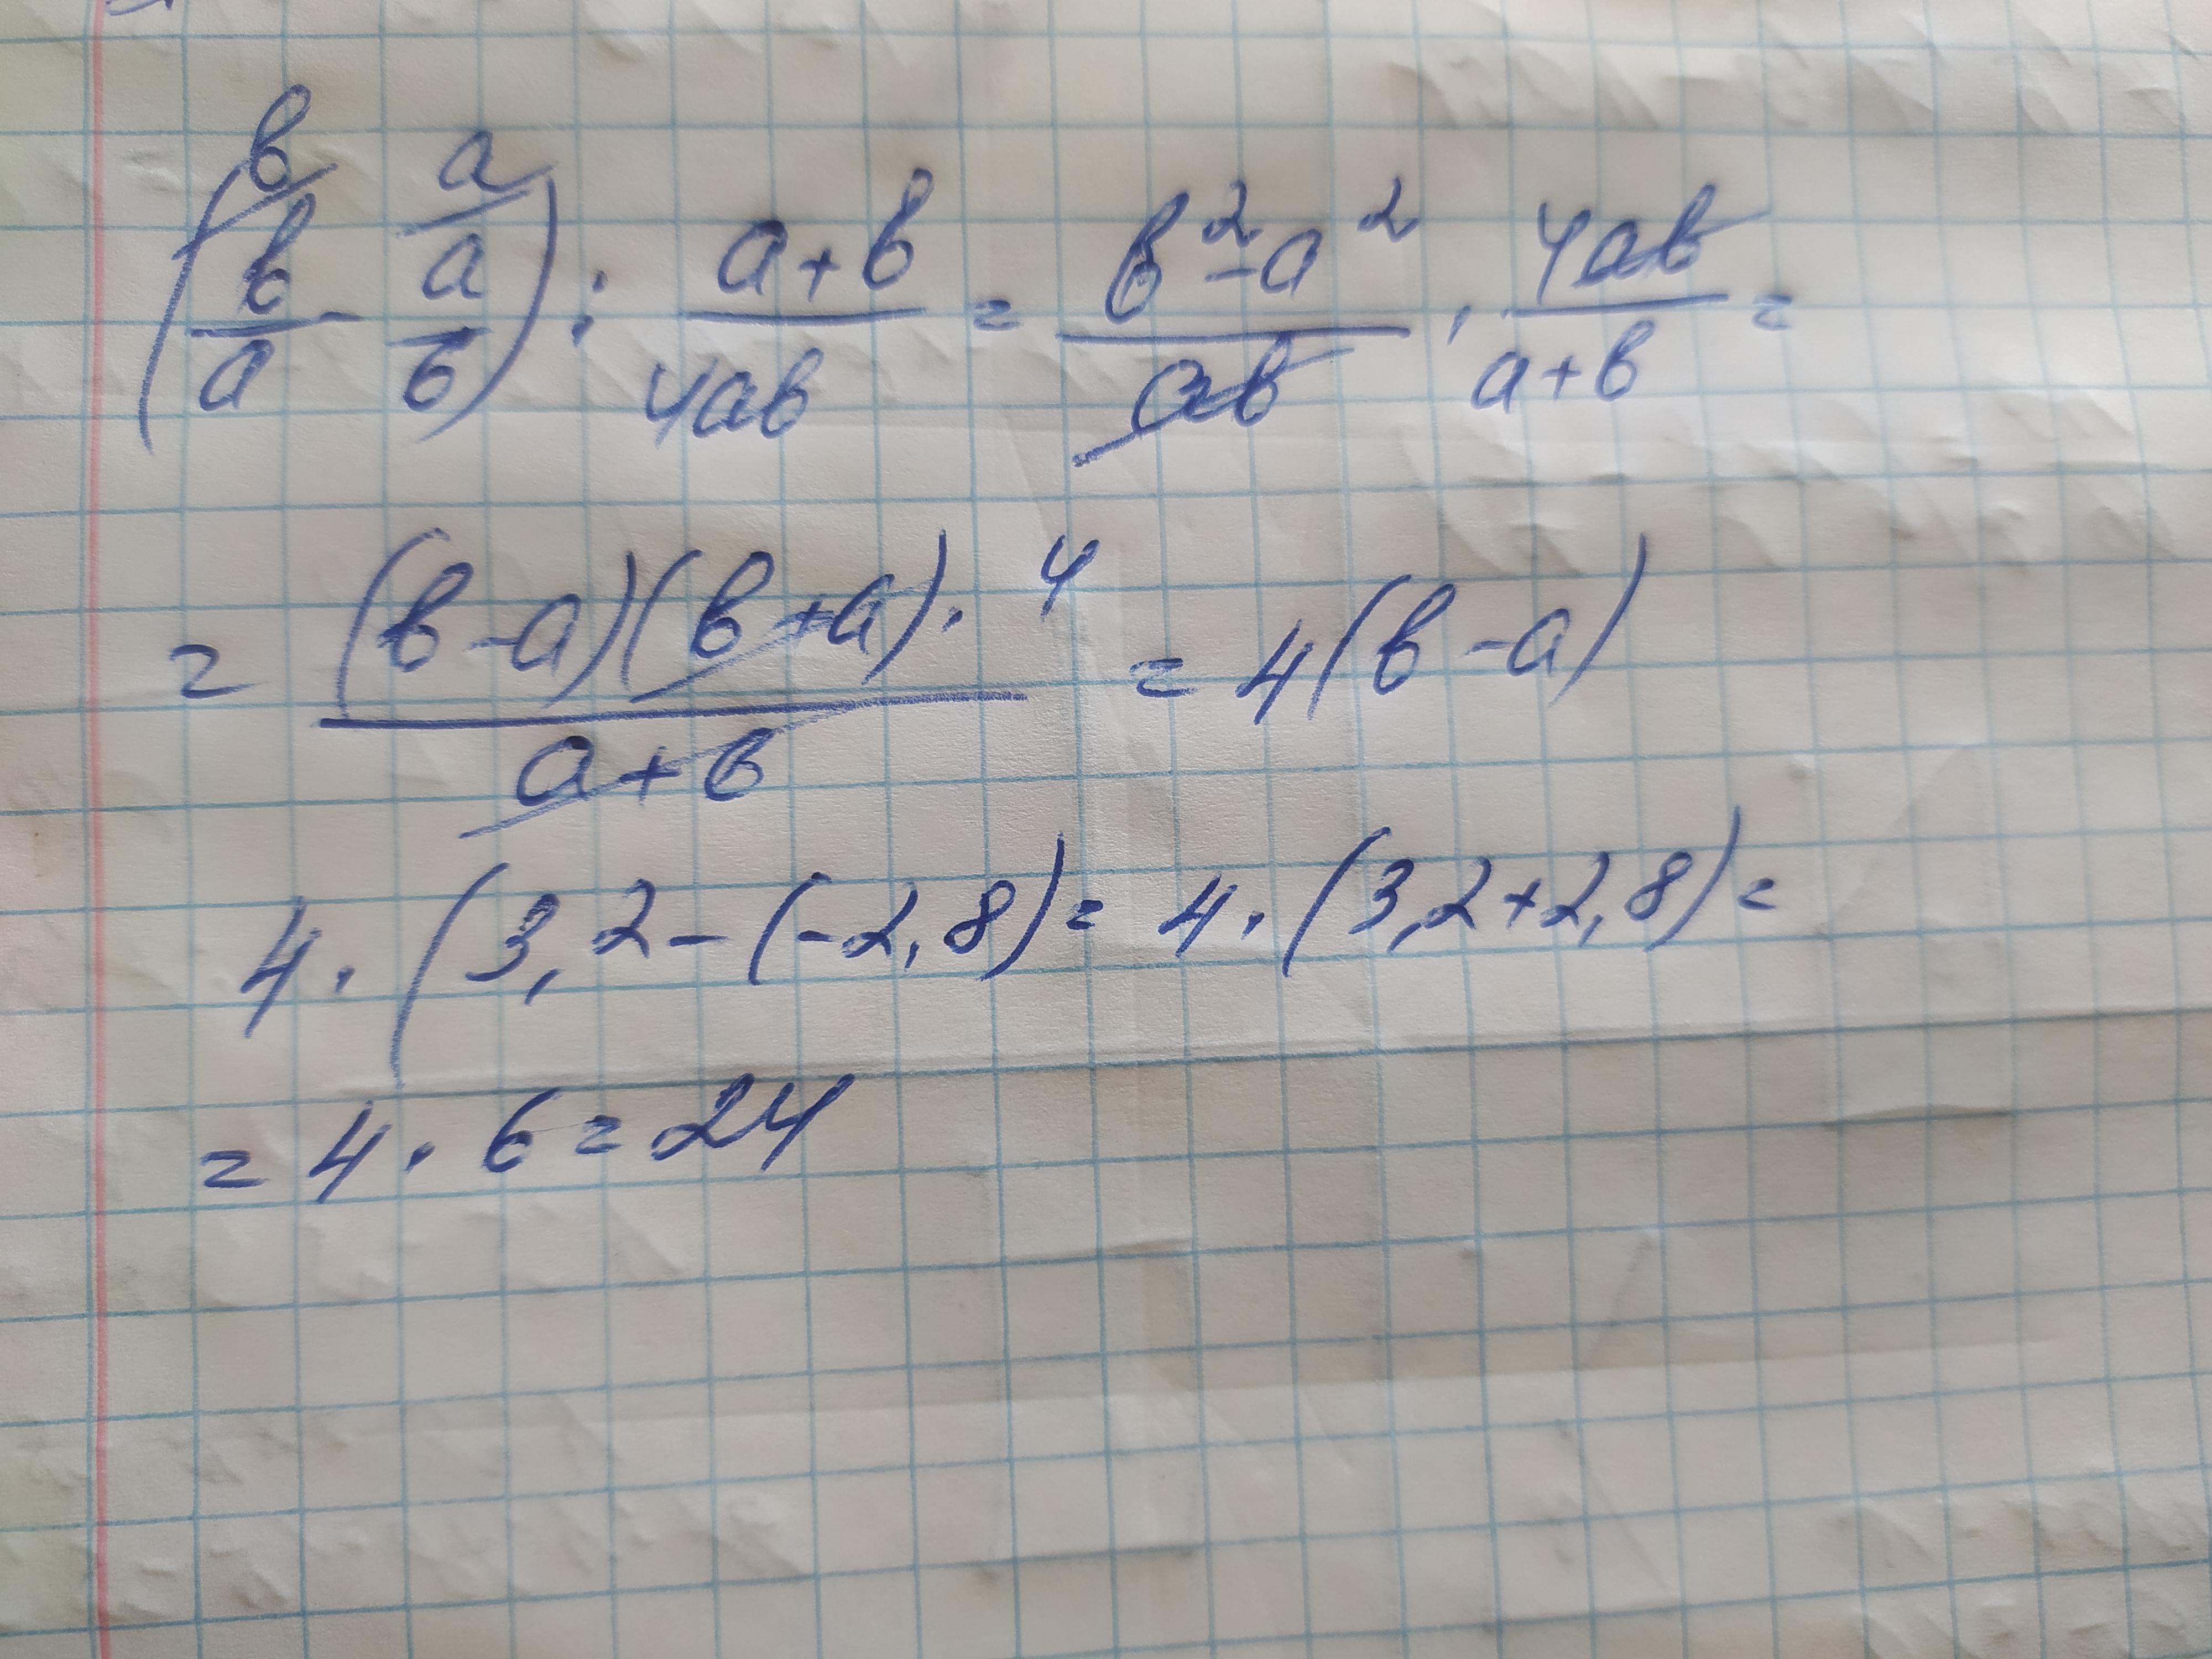 (b/a - a/b) : (a+b)/(4ab) = (b²-a²)/(ab) · (4ab)/(a+b) =
= ((b-a)(b+a)·4)/(a+b) = 4(b-a)
4·(3,2-(-2,8)= 4·(3,2+2,8)=
= 4·6=24